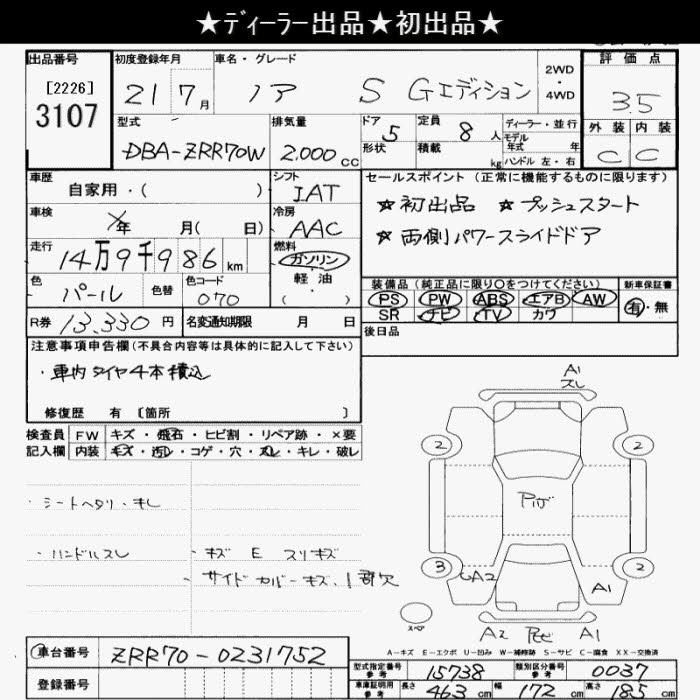 ★ディーラー出品★初出品★
出品番号 初度登録年月 車名・グレード 評価点
[2226]
3107
21 7月 ノア S Gエディション 2WD・4WD 3.5
型式 排気量 ドア 5 定員 8人 ディーラー・並行 外装 内装
形状 積載 kg モデル年式 年 ハンドル 左・右
DBA-ZRR70W 2,000cc C C
車歴 シフト セールスポイント(正常に機能するものに限ります)
自家用・( ) IAT ★初出品 ★プッシュスタート
車検 年 月( 日) 冷房 AAC ★両側パワースライドドア
走行 14万9千986km 燃料 ガソリン・軽油・( )
色 パール 色替 色コード 070
装備品(純正品に限り○をつけてください) 新車保証書
PS PW ABS エアB AW 有・無
SR ナビ TV カワ
R券 13,330円 名変通知期限 月 日 後日品
注意事項申告欄(不具合内容等は具体的に記入して下さい)
・車内タイヤ4本積込
修復歴 有 〔箇所 〕
検査員記入欄 FW キズ・飛石・ヒビ割・リペア跡・×要
内装 キズ・汚レ・コゲ・穴・スレ・キレ・破レ
・シートヘタリ・キレ
・ハンドルスレ
・キズ E スリキズ
・サイドカバーキズ、1部欠
A1
スレ
2 2
3 2
A2
A1
スペア
A2 A1
A-キズ E-エクボ U-凹み W-補修跡 S-サビ C-腐食 XX-交換済
車台番号 ZRR70-0231752
登録番号
型式指定番号 参考 15738 類別区分番号 参考 0037
車庫証明用 参考 長さ 463cm 幅 172cm 高さ 185cm